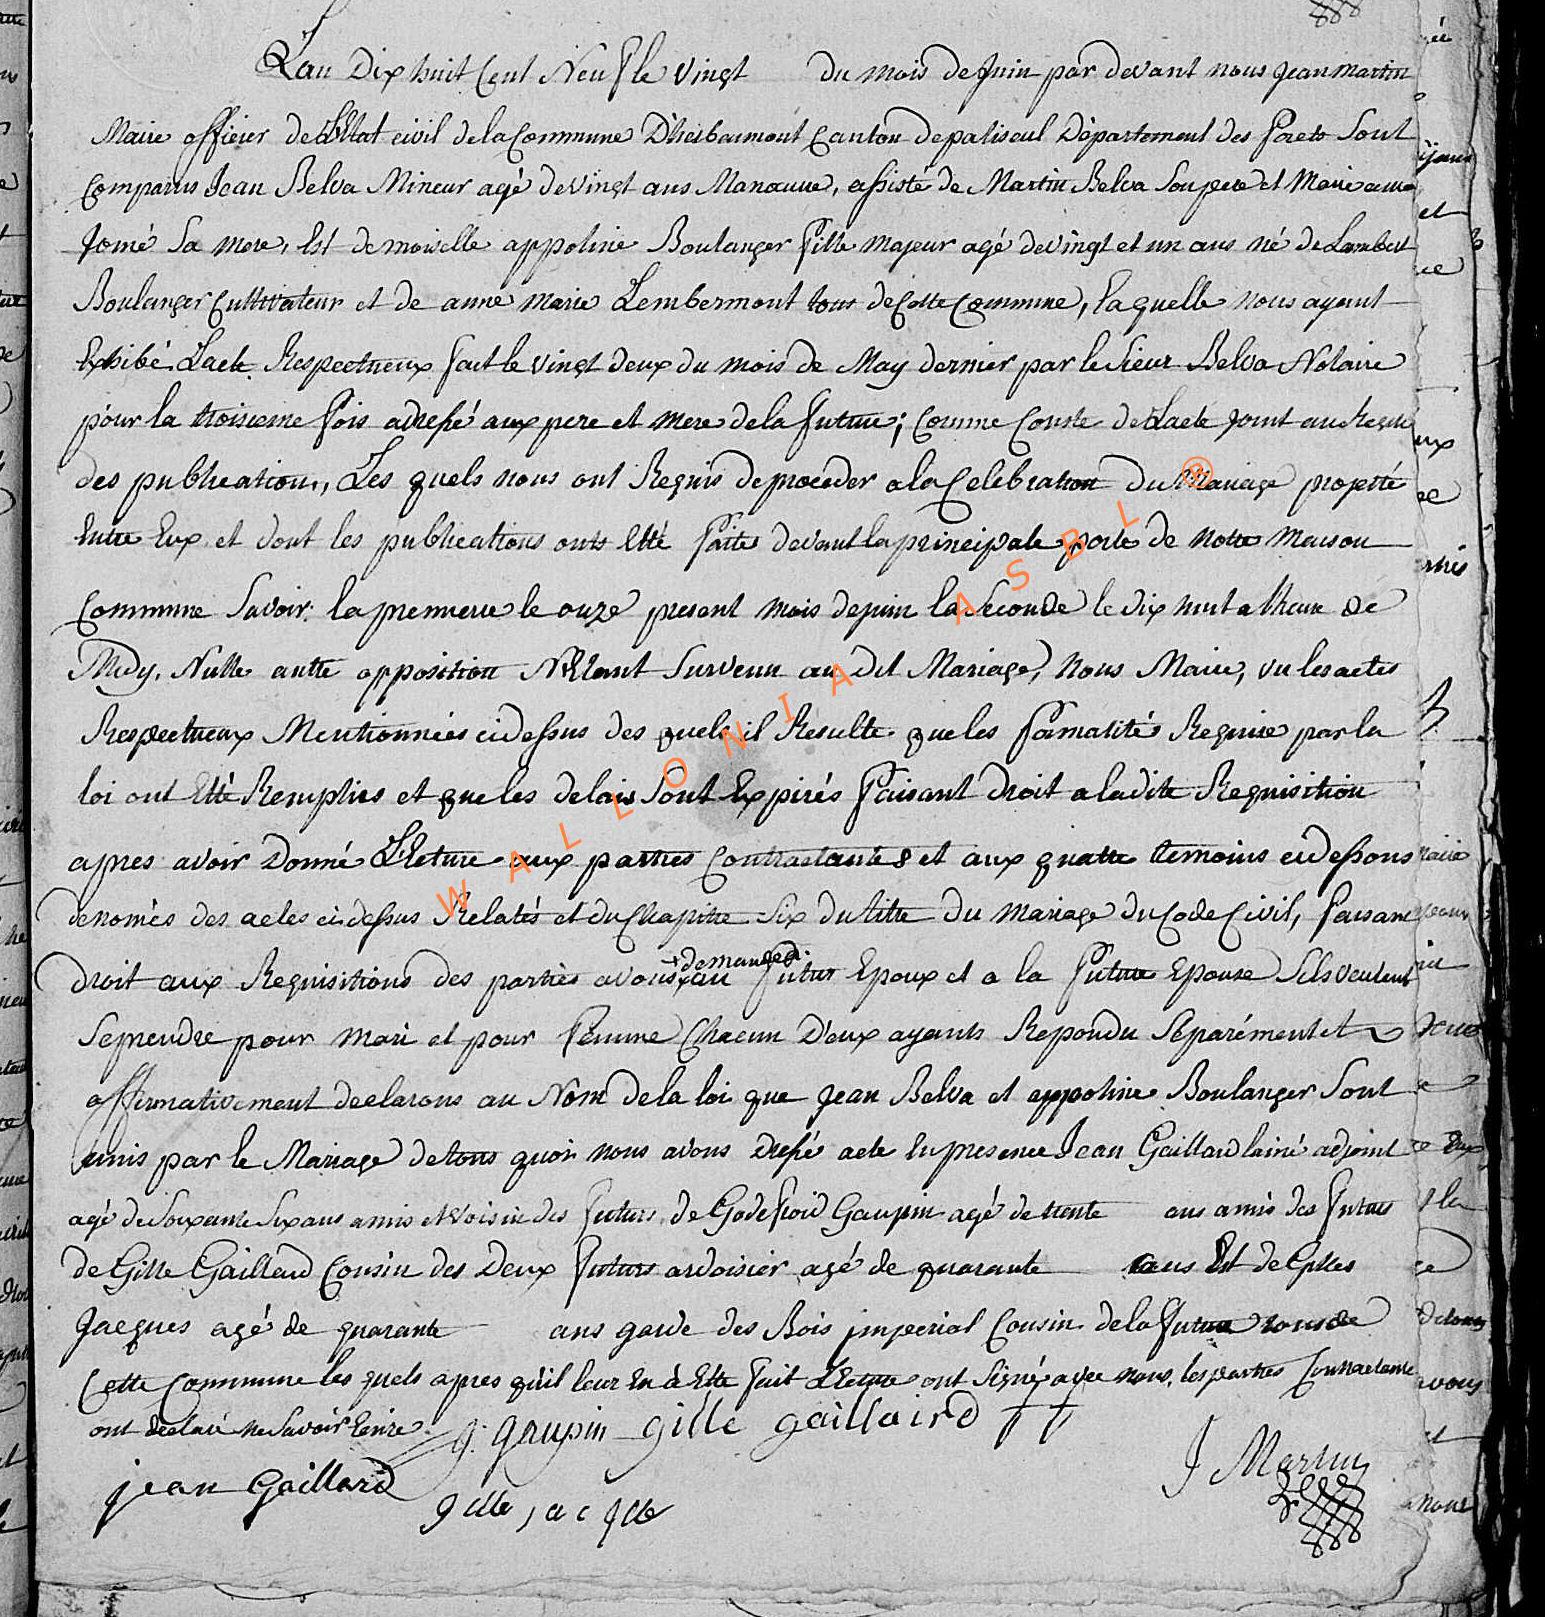 L'an Dix huit Cent Neuf le vingt du mois de Juin par devant nous jean martin
Maire officier de L'Etat civil de la Commune D'herbeumont Canton de paliseul Département des Forets Sont
Comparus Jean Belva Mineur agé de vingt ans Manœuvre, assisté de Martin Belva Son pere et Marie anne
Jomé Sa mere, Est demoiselle appoline Boulanger fille majeur agé de vingt et un ans né de Lambert
Boulanger Cultivateur et de anne marie Lembermont tous de Cette Commune, Laquelle nous ayant
Exhibé L'acte Respectueux fait le vingt deux du mois de May dernier par le Sieur Belva Notaire
pour la troisieme fois adressé aux pere et mere de la future; Comme Conste de L'acte joint au Registre
des publications, Les quels nous ont Requis de proceder a la Celebration du Mariage projetté
Entre Eux et dont les publications onts Etté faites devant la principale porte de notre Maison
Commune Savoir: la premiere le onze present mois de juin la Seconde le dix huit a l'heure de
Midy, Nulle autre opposition N'Etant Survenu au dit Mariage, Nous Maire, vu les actes
Respectueux Mentionnées ci dessus des quels il Resulte que les formalités Requise par la
loi ont Etté Remplies et que les delais Sont Expirés faisant droit a la dite Requisition
apres avoir Donné L'lecture aux parties Contractantes et aux quatre temoins ci dessous
denomés des actes ci dessus Relatés et du Chapitre Six du titre du mariage du Code Civil, faisant
droit aux Requisitions des parties avons + demandez au futur Epoux et a la future Epouse S'ils veulent
Se prendre pour mari et pour femme Chacun D'eux ayants Repondu Séparément et
affirmativement declarons au Nom de la loi que jean Belva et appoline Boulanger Sont
unis par le Mariage de tous quoi nous avons dressé acte En presence Jean Gaillard lainé adjoint
agé de Soixante Six ans amis et voisin des futurs, de Godefroid Gaupin agé de trente ans amis des futurs
de Gille Gaillard Cousin des Deux futurs ardoisier agé de quarante ans Est de Gilles
Jacques agé de quarante ans garde des Bois imperial Cousin de la future tous de
Cette Commune les quels apres qu'il leur En à Etté fait L'lecture ont Signé avec nous, les parties Contractante
ont declaré ne Savoir Ecrire.
g. gaupin gille gaillaird
jean Gaillard
gille jacque
J Martin
WALLONIA ASBL ®